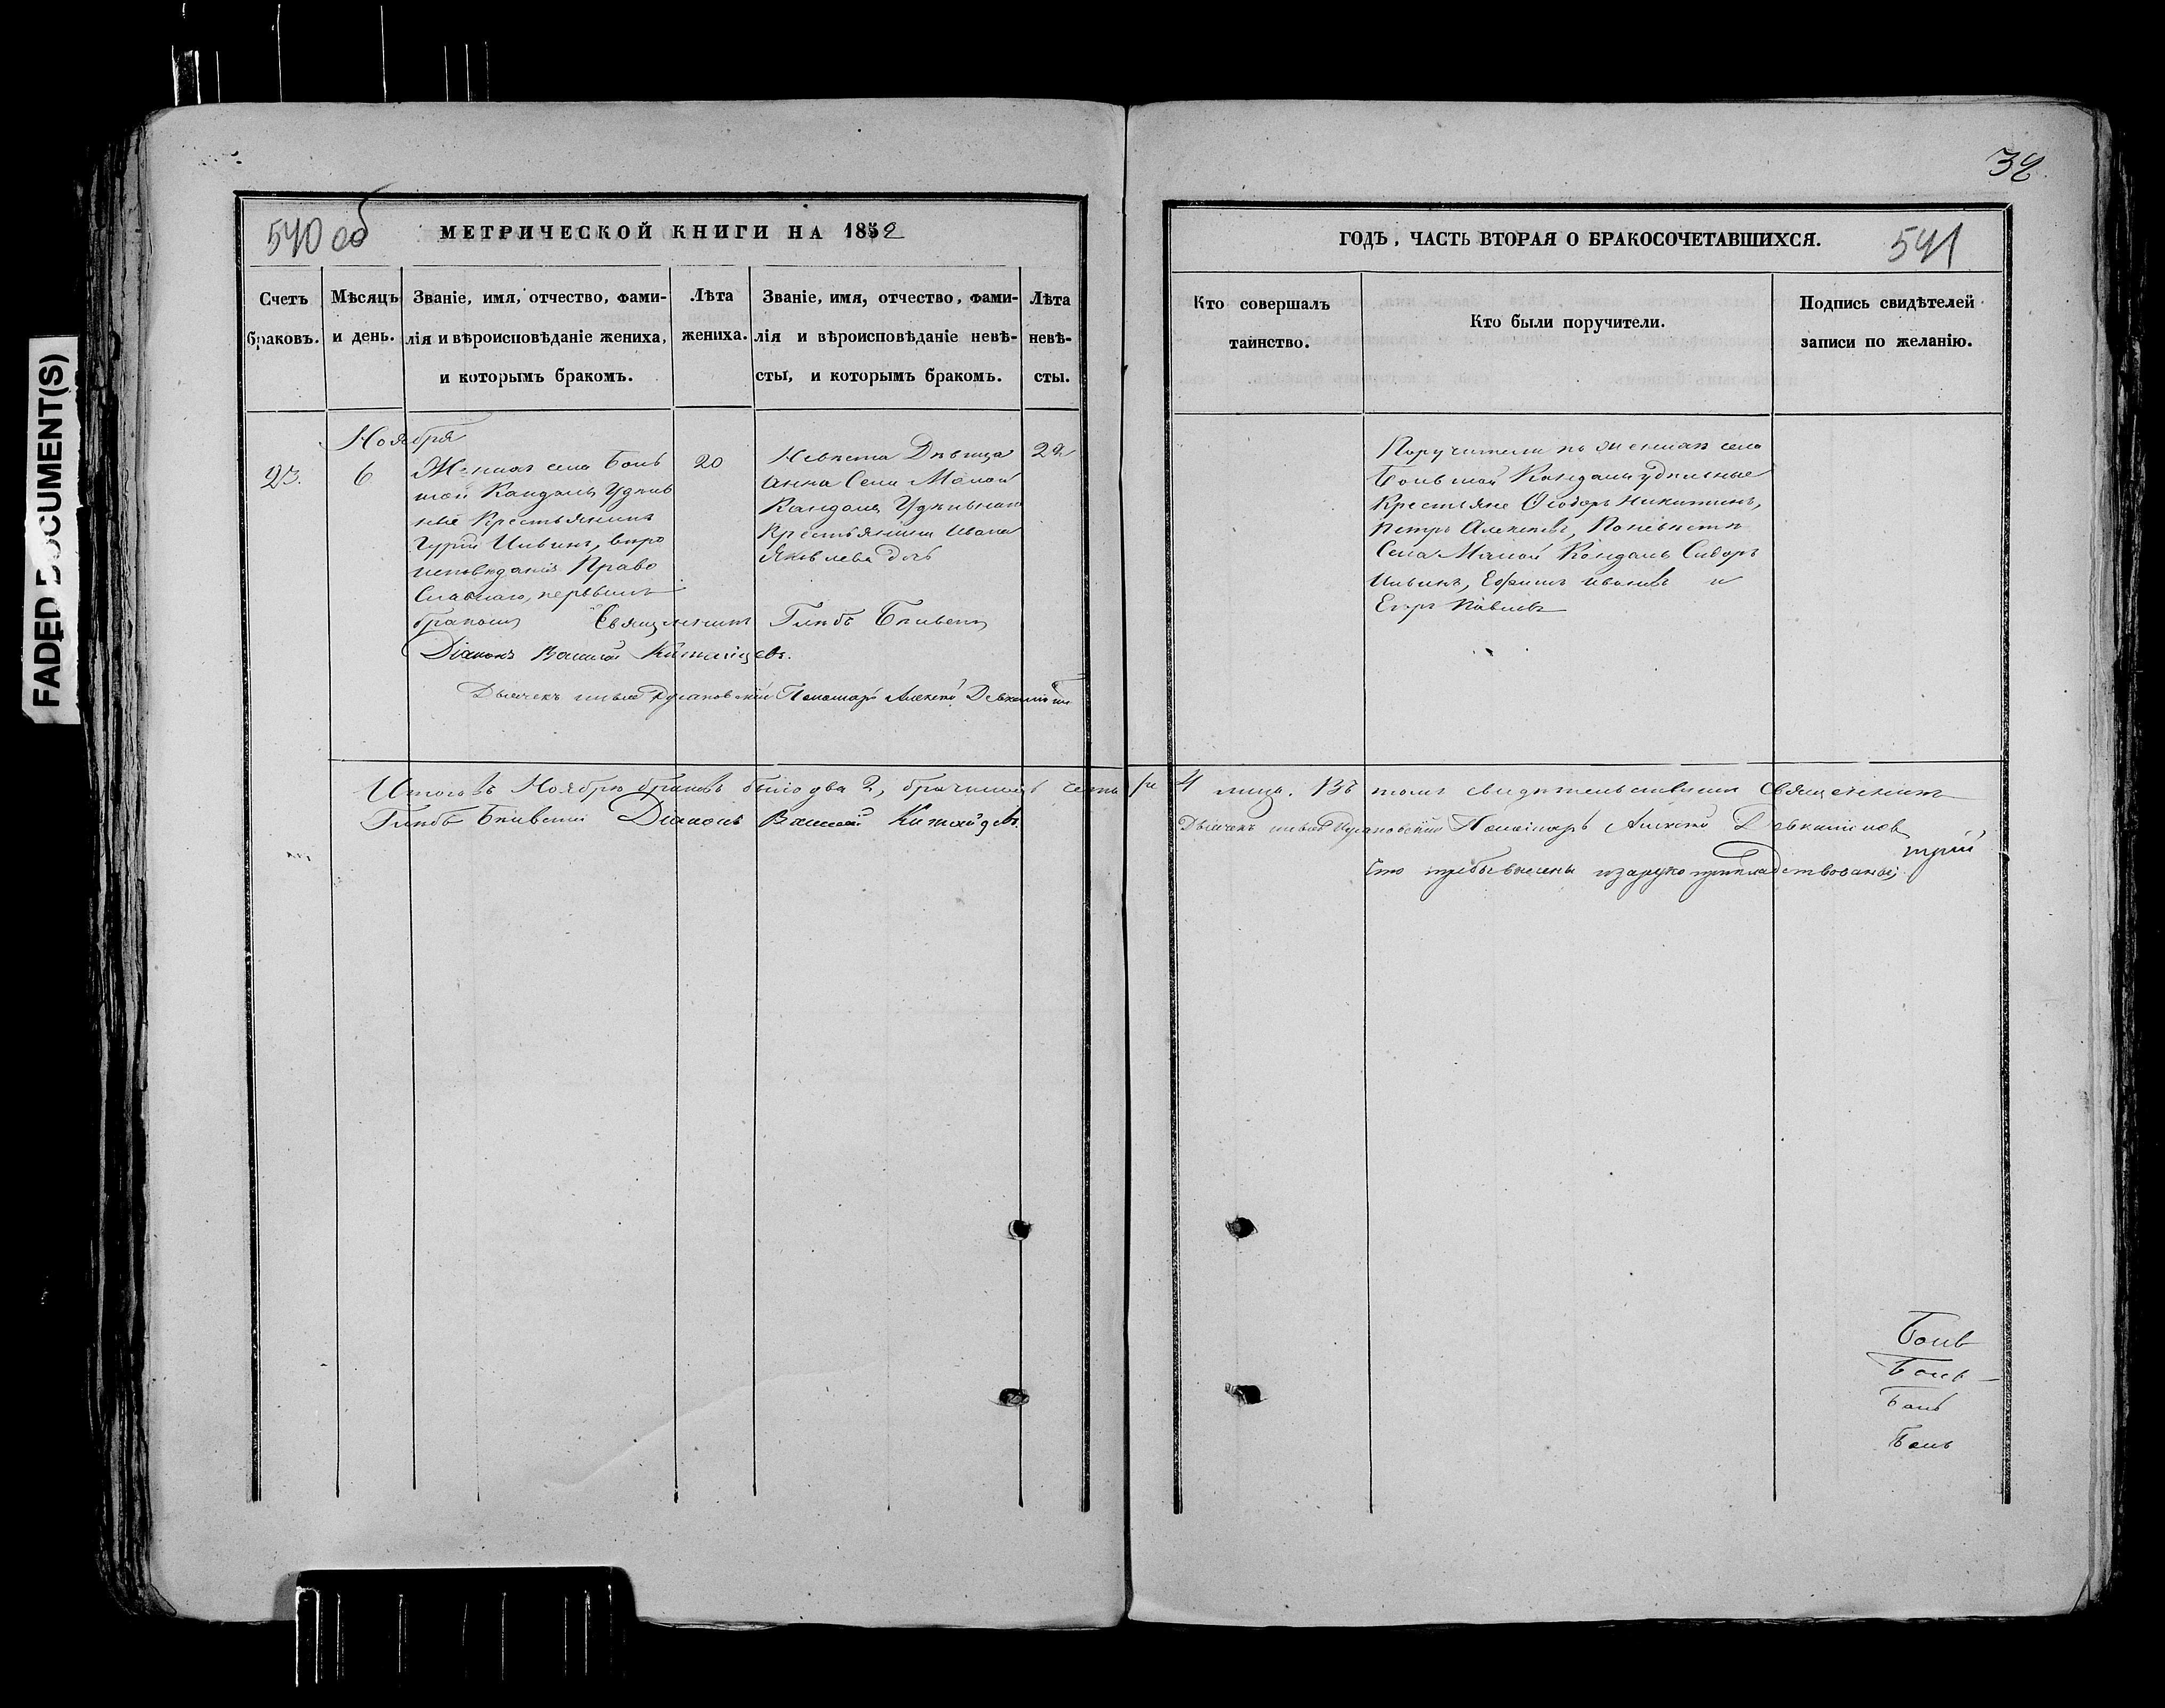 FADED DOCUMENT(S)
38
540 об
МЕТРИЧЕСКОЙ КНИГИ НА 1852
Счетъ браковъ.
Мѣсяцъ и день.
Званіе, имя, отчество, фами-
лія и вѣроисповѣданіе жениха,
и которымъ бракомъ.
Лѣта
жениха.
Званіе, имя, отчество, фами-
лія и вѣроисповѣданіе невѣ-
сты, и которымъ бракомъ.
Лѣта
невѣ-
сты.
Ноября
23.
6
Женихъ села Боль
шой Кандалы Удѣль
ный Крестьянинъ
Гурій Ильинъ, вѣро
исповѣданія Право
славнаго, первымъ
бракомъ
20
Невѣста Дѣвица
Анна Села Малой
Кандалы Удѣльнаго
Крестьянина Ивана
Яковлева дочь
22
Священникъ Глѣбъ
Діаконъ Василій Китайцевъ.
Дьячекъ Пономарь Алексѣй
Итого въ Ноябрѣ браковъ было два 2, брачившихся
Глѣбъ Діаконъ Василій Китайцевъ.
ГОДЪ, ЧАСТЬ ВТОРАЯ О БРАКОСОЧЕТАВШИХСЯ.
541
Кто совершалъ
таинство.
Кто были поручители.
Подпись свидѣтелей
записи по желанію.
Поручители по женихѣ села
Большой Кандалы удѣльные
Крестьяне Ѳеодоръ Никитинъ,
Петръ Алексѣевъ, По невѣстѣ
Села Малой Кандалы Сидоръ
Ильинъ, Ефимъ Ивановъ и
Егоръ Павловъ
4 лица. Въ томъ свидѣтельствуемъ Священникъ
Дьячекъ Пономарь Алексѣй
Боль
Боль
Боль
Боль